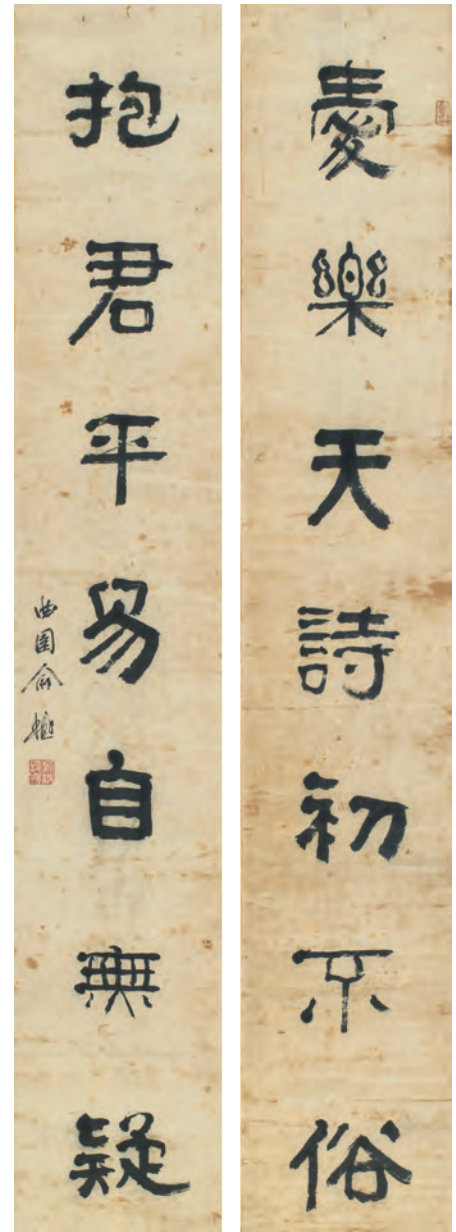 愛樂天詩初不俗
抱君平易自無疑
曲園俞樾